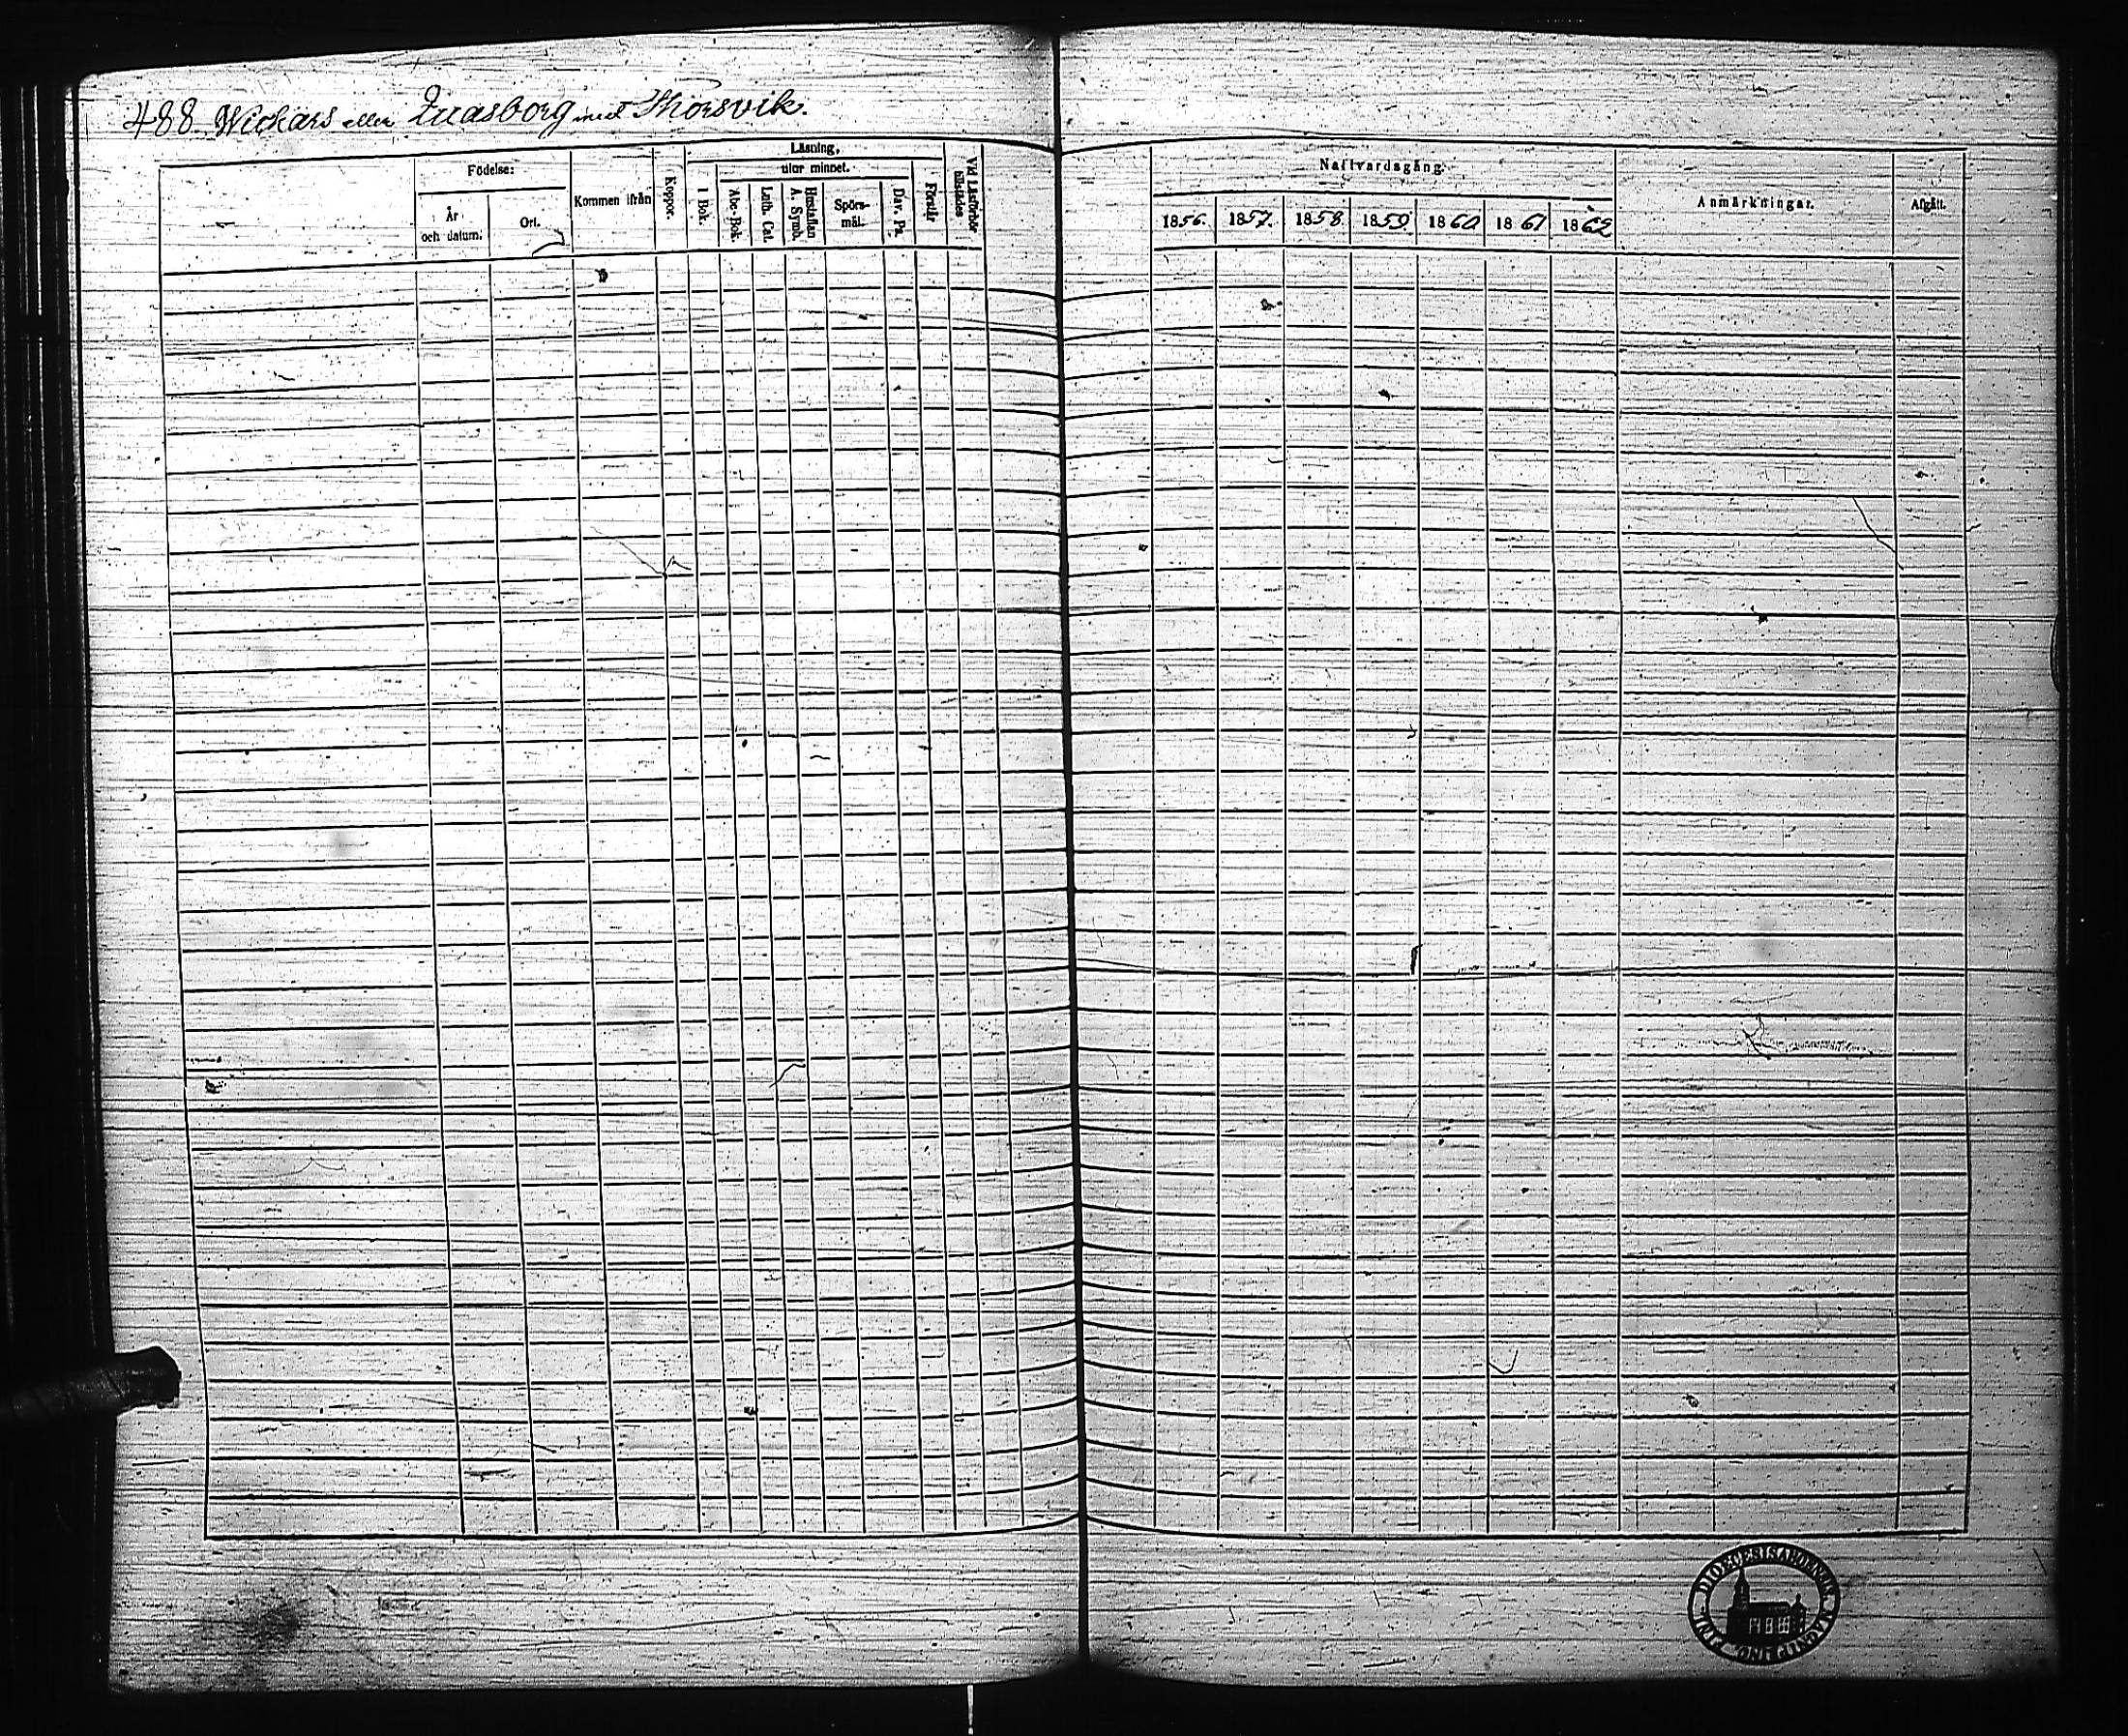 488. Wickars eller Zuasborg med Thorsvik.
Födelse:
År och datum.
Ort.
Kommen ifrån
Koppor.
Läsning,
utur minnet.
I Bok.
Abc-Bok.
Luth. Cat.
Hustaflan A. Symb.
Spörs-mål.
Dav. Ps.
Förstår
Vid Läsförhör tillstädes
Nattvardsgång.
1856. 1857. 1858. 1859. 1860 1861 1862
Anmärkningar.
Afgått.